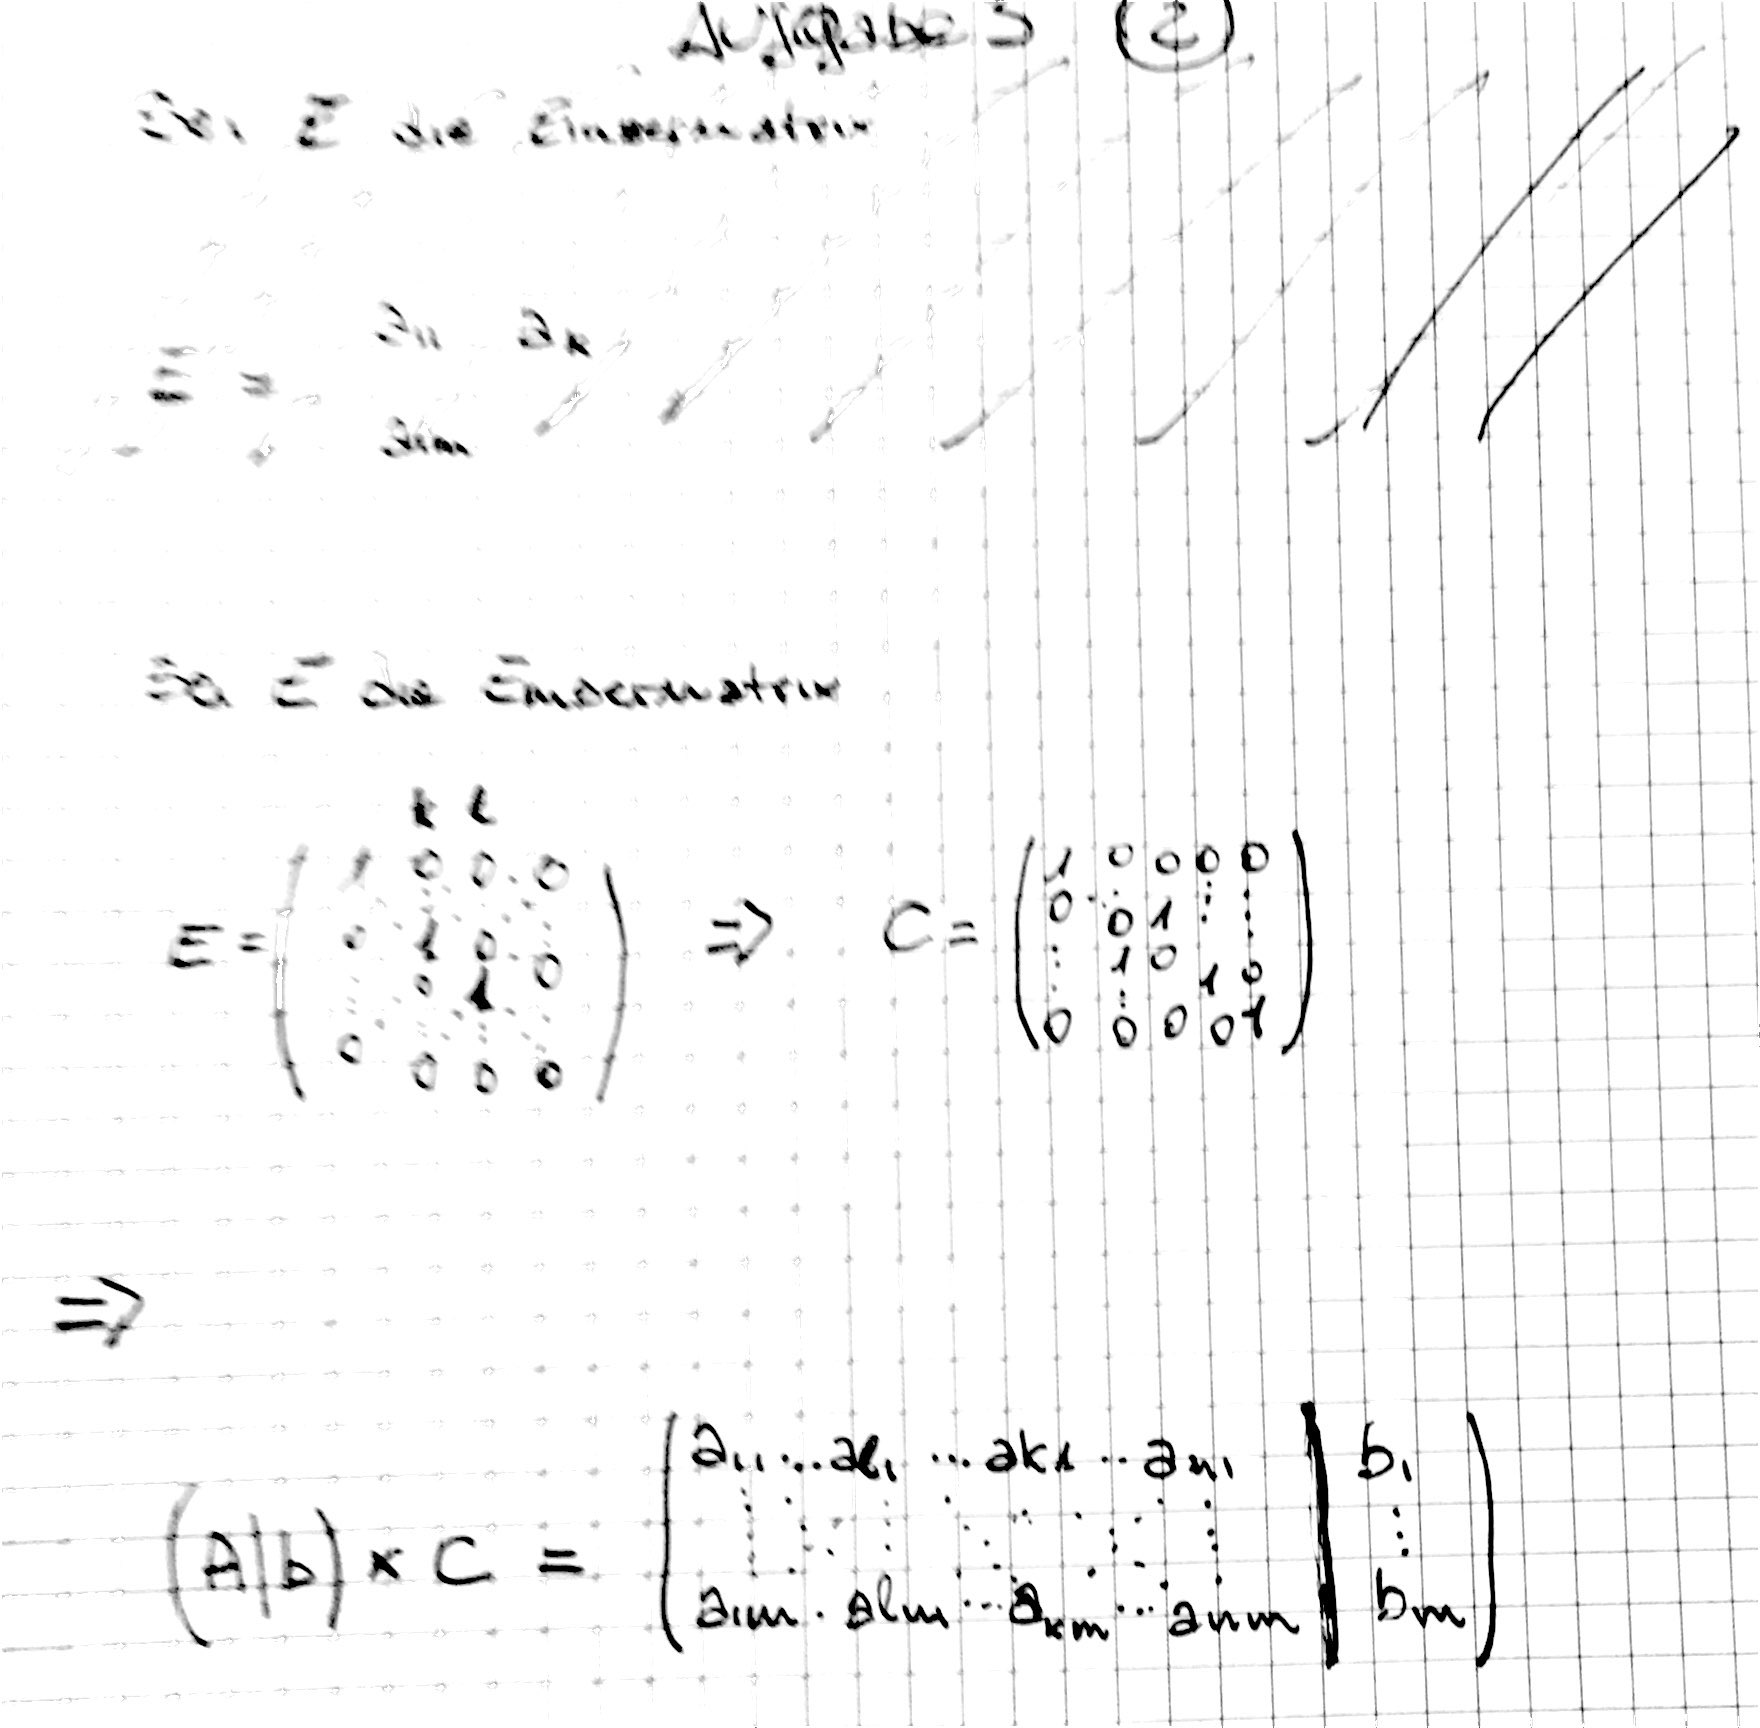 Aufgabe 3 (2)
Sei E die Einhermatrix
E = a11 ak
a1m
Sei E die Einhermatrix
k l
E = ( 1 0 0 . 0
0 1 0 . 0
0 1 0
0 0 0 0 ) ⇒ C = ( 1 0 0 0 0
0 ⋱ 0 1 ⋮ ⋮
⋮ 1 0 1 0
0 0 0 0 1 )
⇒
(A|b) × C = ( a11 ... al1 ... ak1 ... an1 | b1
⋮ ⋮
a1m . alm ... akm ... anm | bm )